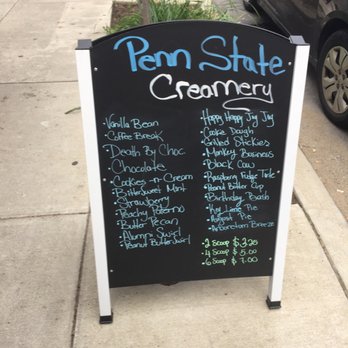 Penn State
Creamery
Vanilla Bean
Coffee Break
Death By Choc
Chocolate
Cookies-n-Cream
Bittersweet Mint
Strawberry
Peachy Paterno
Butter Pecan
Alumni Swirl
Peanut Butter Swirl
Happy Happy Joy Joy
Cookie Dough
Grilled Stickies
Monkey Business
Black Cow
Raspberry Fudge Torte
Peanut Butter Cup
Birthday Bash
Key Lime Pie
Pie
Arboretum Breeze
2 Scoop $3.25
4 Scoop $5.00
6 Scoop $7.00